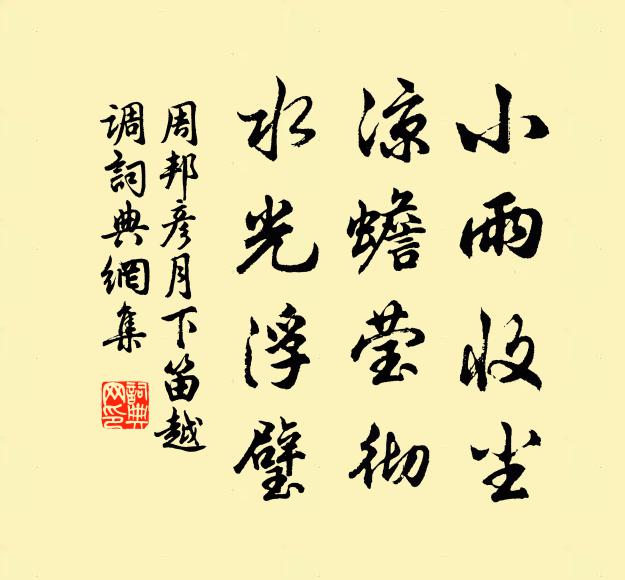 小雨收尘
凉蟾莹彻
水光浮璧
周邦彦月下笛越
调词典網集
詞典網印